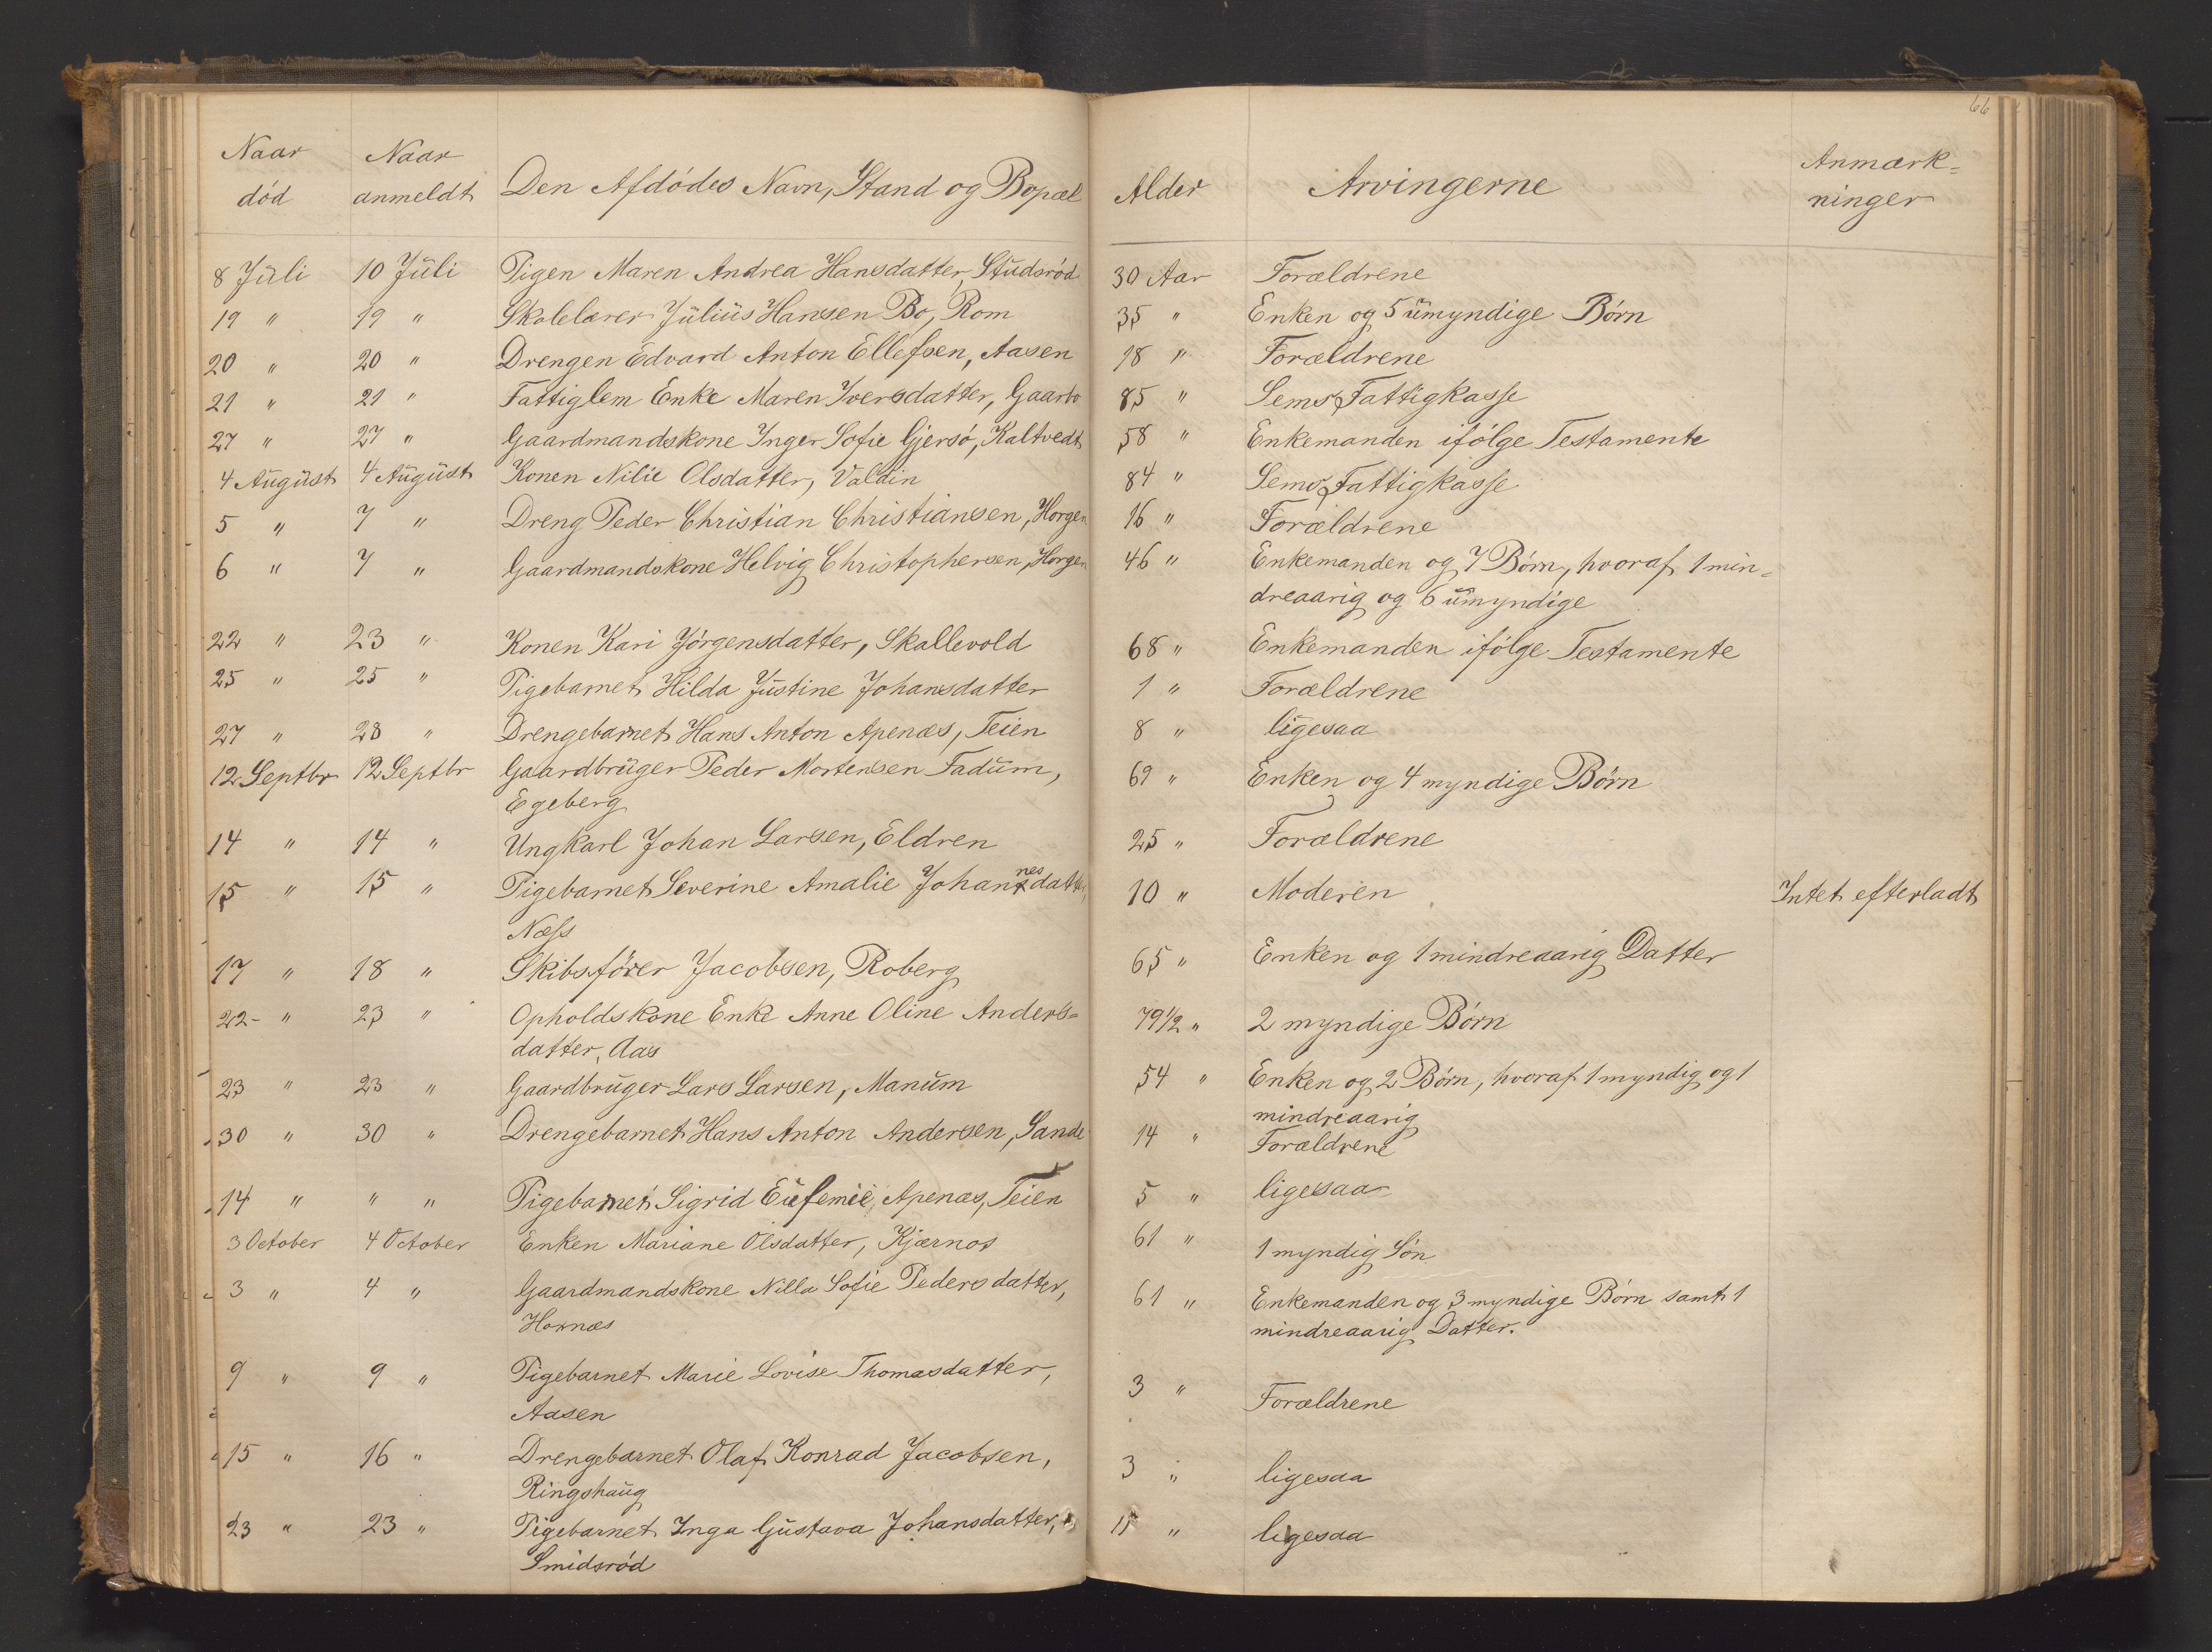 66
Naar død | Naar anmeldt | Den Afdødes Navn, Stand og Bopæl | Alder | Arvingerne | Anmærk-
ninger
8 Juli | 10 Juli | Pigen Maren Andrea Hansdatter, Studsrød | 30 Aar | Forældrene
19 " | 19 " | Skolelærer Julius Hansen Bø, Rom | 35 " | Enken og 5 umyndige Børn
20 " | 20 " | Drengen Edvard Anton Ellefsen, Aasen | 18 " | Forældrene
21 " | 21 " | Fattiglem Enke Maren Iversdatter, Gaarbo | 85 " | Sems Fattigkasse
27 " | 27 " | Gaardmandskone Inger Sofie Gjersø, Kaltvedt | 58 " | Enkemanden ifølge Testamente
4 August | 4 August | Konen Nilie Olsdatter, Valdin | 84 " | Sems Fattigkasse
5 " | 7 " | Dreng Peder Christian Christiansen, Horgen | 16 " | Forældrene
6 " | 7 " | Gaardmandskone Helvig Christophersen, Horgen | 46 " | Enkemanden og 7 Børn, hvoraf 1 min-
dreaarig og 6 umyndige
22 " | 23 " | Konen Kari Jörgensdatter, Skallevold | 68 " | Enkemanden ifølge Testamente
25 " | 25 " | Pigebarnet Hilda Justine Johansdatter | 1 " | Forældrene
27 " | 28 " | Drengebarnet Hans Anton Apenæs, Teien | 8 " | ligesaa
12 Septbr | 12 Septbr | Gaardbruger Peder Mortensen Fadum, | 69 " | Enken og 4 myndige Børn
Egeberg
14 " | 14 " | Ungkarl Johan Larsen, Eldren | 25 " | Forældrene
15 " | 15 " | Pigebarnet Severine Amalie Johannesdatter, | 10 " | Moderen | Intet efterladt
Næss
17 " | 18 " | Skibsfører Jacobsen, Roberg | 65 " | Enken og 1 mindreaarig Datter
22 - " | 23 " | Opholdskone Enke Anne Oline Anders- | 79 1/2 " | 2 myndige Børn
datter, Aas
23 " | 23 " | Gaardbruger Lars Larsen, Manum | 54 " | Enken og 2 Børn, hvoraf 1 myndig og 1
mindreaarig
30 " | 30 " | Drengebarnet Hans Anton Andersen, Sande | 14 " | Forældrene
14 " | " " | Pigebarnet Sigrid Eufemie, Apenæs, Teien | 5 " | ligesaa
3 October | 4 October | Enken Mariane Olsdatter, Kjærnos | 61 " | 1 myndig Søn
3 " | 4 " | Gaardmandskone Nilla Sofie Pedersdatter, | 61 " | Enkemanden og 3 myndige Børn samt 1
Hornæs | mindreaarig Datter.
9 " | 9 " | Pigebarnet Marie Lovise Thomasdatter, | 3 " | Forældrene
Aasen
15 " | 16 " | Drengebarnet Olaf Konrad Jacobsen, | 3 " | ligesaa
Ringshaug
23 " | 23 " | Pigebarnet Inga Gustava Johansdatter, | " | ligesaa
Smidsrød